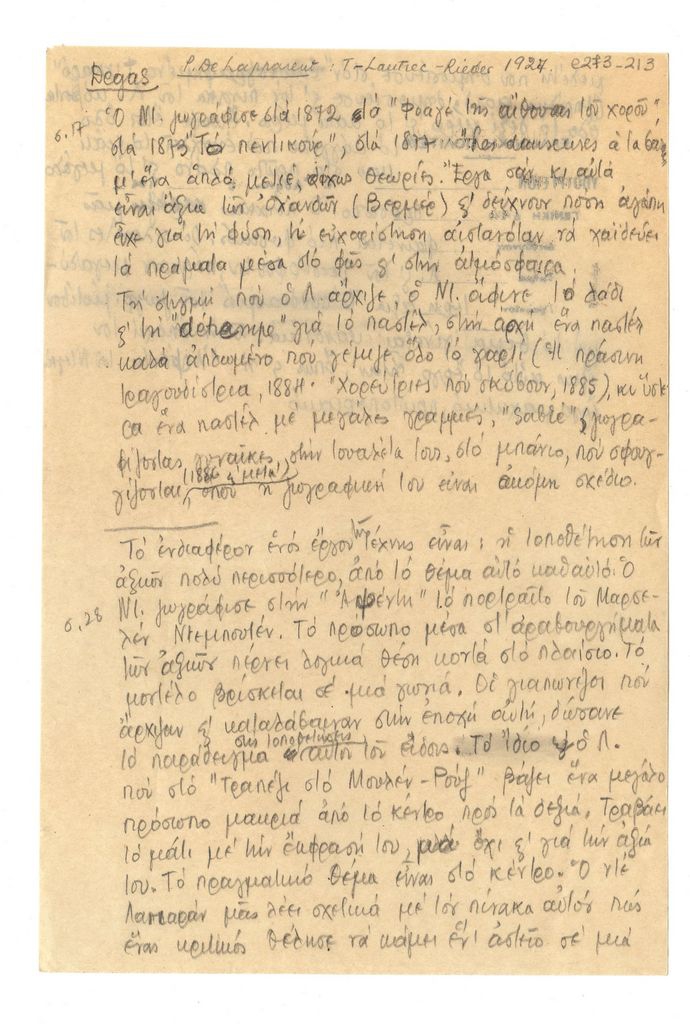 Degas P. De Lapparent : T-Lautrec - Rieder 1927.
σ. 17 Ὁ Ντ. ζωγράφισε στά 1872 τό "Φουαγέ τῆς αἴθουσας τοῦ χοροῦ"
στά 1873 "Τό πεντικούρ", στά 1877 "les danseuses à la barre"
μ' ἕνα ἁπλό μετιέ, δίχως θεωρίες. Ἔργα σάν κι αὐτά
εἶναι ἄξια τῶν Ὁλλανδῶν (Βερμέρ) κ' δείχνουν πόση ἀγάπη
εἶχε γιά τή φύση, τί εὐχαρίστηση αἰσθανόταν νά χαϊδεύει
τά πράματα μέσα στό φῶς κ' στήν ἀτμόσφαιρα.
Τή στιγμή πού ὁ Λ. ἄρχιζε, ὁ Ντ. ἄφινε τό λάδι
κ' τή "détrempe" γιά τό παστέλ, στήν ἀρχή ἕνα παστέλ
καλά ἁπλωμένο πού γέμιζε ὅλο τό χαρτί (Ἡ πράσινη
τραγουδίστρια, 1884. "Χορεύτριες πού σκύβουν, 1885), κι ὕστε-
ρα ἕνα παστέλ μέ μεγάλες γραμμές, "sabré" ζωγρα-
φίζοντας γυναῖκες, στήν τουαλέτα τους, στό μπάνιο, πού σφουγ-
γίζονται (1886 κ' μετά) ὅπου ἡ ζωγραφική του εἶναι ἀκόμη σχέδιο.
Τό ἐνδιαφέρον ἑνός ἔργου τῆς τέχνης εἶναι : ἡ τοποθέτηση τῶν
ἀξιῶν πολύ περισσότερο, ἀπό τό θέμα αὐτό καθαυτό. Ὁ
σ. 28 Ντ. ζωγράφισε στήν "Ἀψέντη" τό πορτραῖτο τοῦ Μαρσε-
λέν Ντεμπουτέν. Τό πρόσωπο μέσα στ' ἀραβουργήματα
τῶν ἀξιῶν πέρνει λογικά θέση κοντά στό πλαίσιο. Τό
μοντέλο βρίσκεται σέ μιά γωνιά. Οἱ γιαπωνέζοι πού
ἄρχιζαν κ' καταλάβαιναν στήν ἐποχή αὐτή, δώσανε
τό παράδειγμα στίς τοποθετήσεις αὐτοῦ τοῦ εἴδους. Τό ἴδιο κ' ὁ Λ.
πού στό "Τραπέζι στό Μουλέν-Ρούζ" βάζει ἕνα μεγάλο
πρόσωπο μακριά ἀπό τό κέντρο πρός τά δεξιά. Τραβάει
τό μάτι μέ τήν ἔκφρασή του, μά ὄχι κ' γιά τήν ἀξία
του. Τό πραγματικό θέμα εἶναι στό κέντρο. Ὁ ντέ
Λαπαράν μᾶς λέει σχετικά μέ τόν πίνακα αὐτόν πώς
ἕνας κριτικός θέλησε νά κάμει ἕν' ἀστεῖο σέ μιά